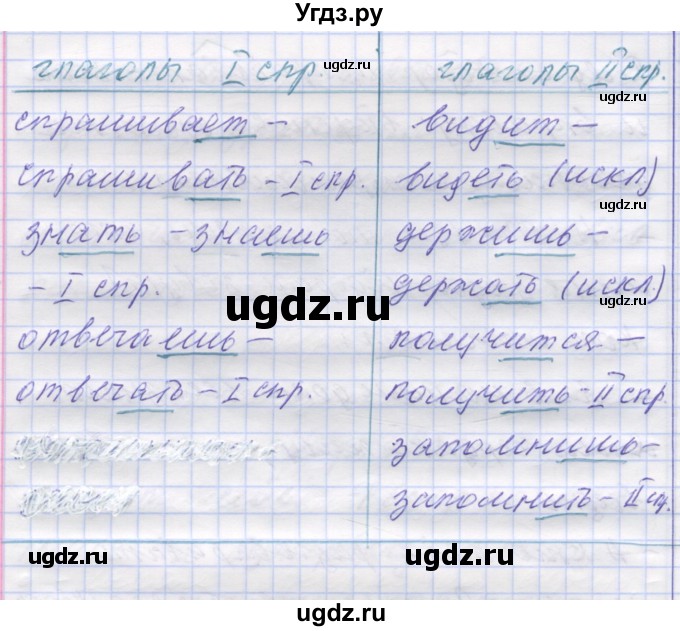 Угдз.ру
глаголы I спр. глаголы II спр.
ugdz.ru ugdz.ru
спрашивает – видит –
ugdz.ru
спрашивать – I спр. видеть (искл)
ugdz.ru
знать – знаешь держишь –
– I спр. держать (искл.)
ugdz.ru ugdz.ru
отвечаешь – получится –
отвечать – I спр. получить – II спр
запомнишь –
запомнить – II спр.
ugdz.ru ugdz.ru ugdz.ru
ugdz.ru